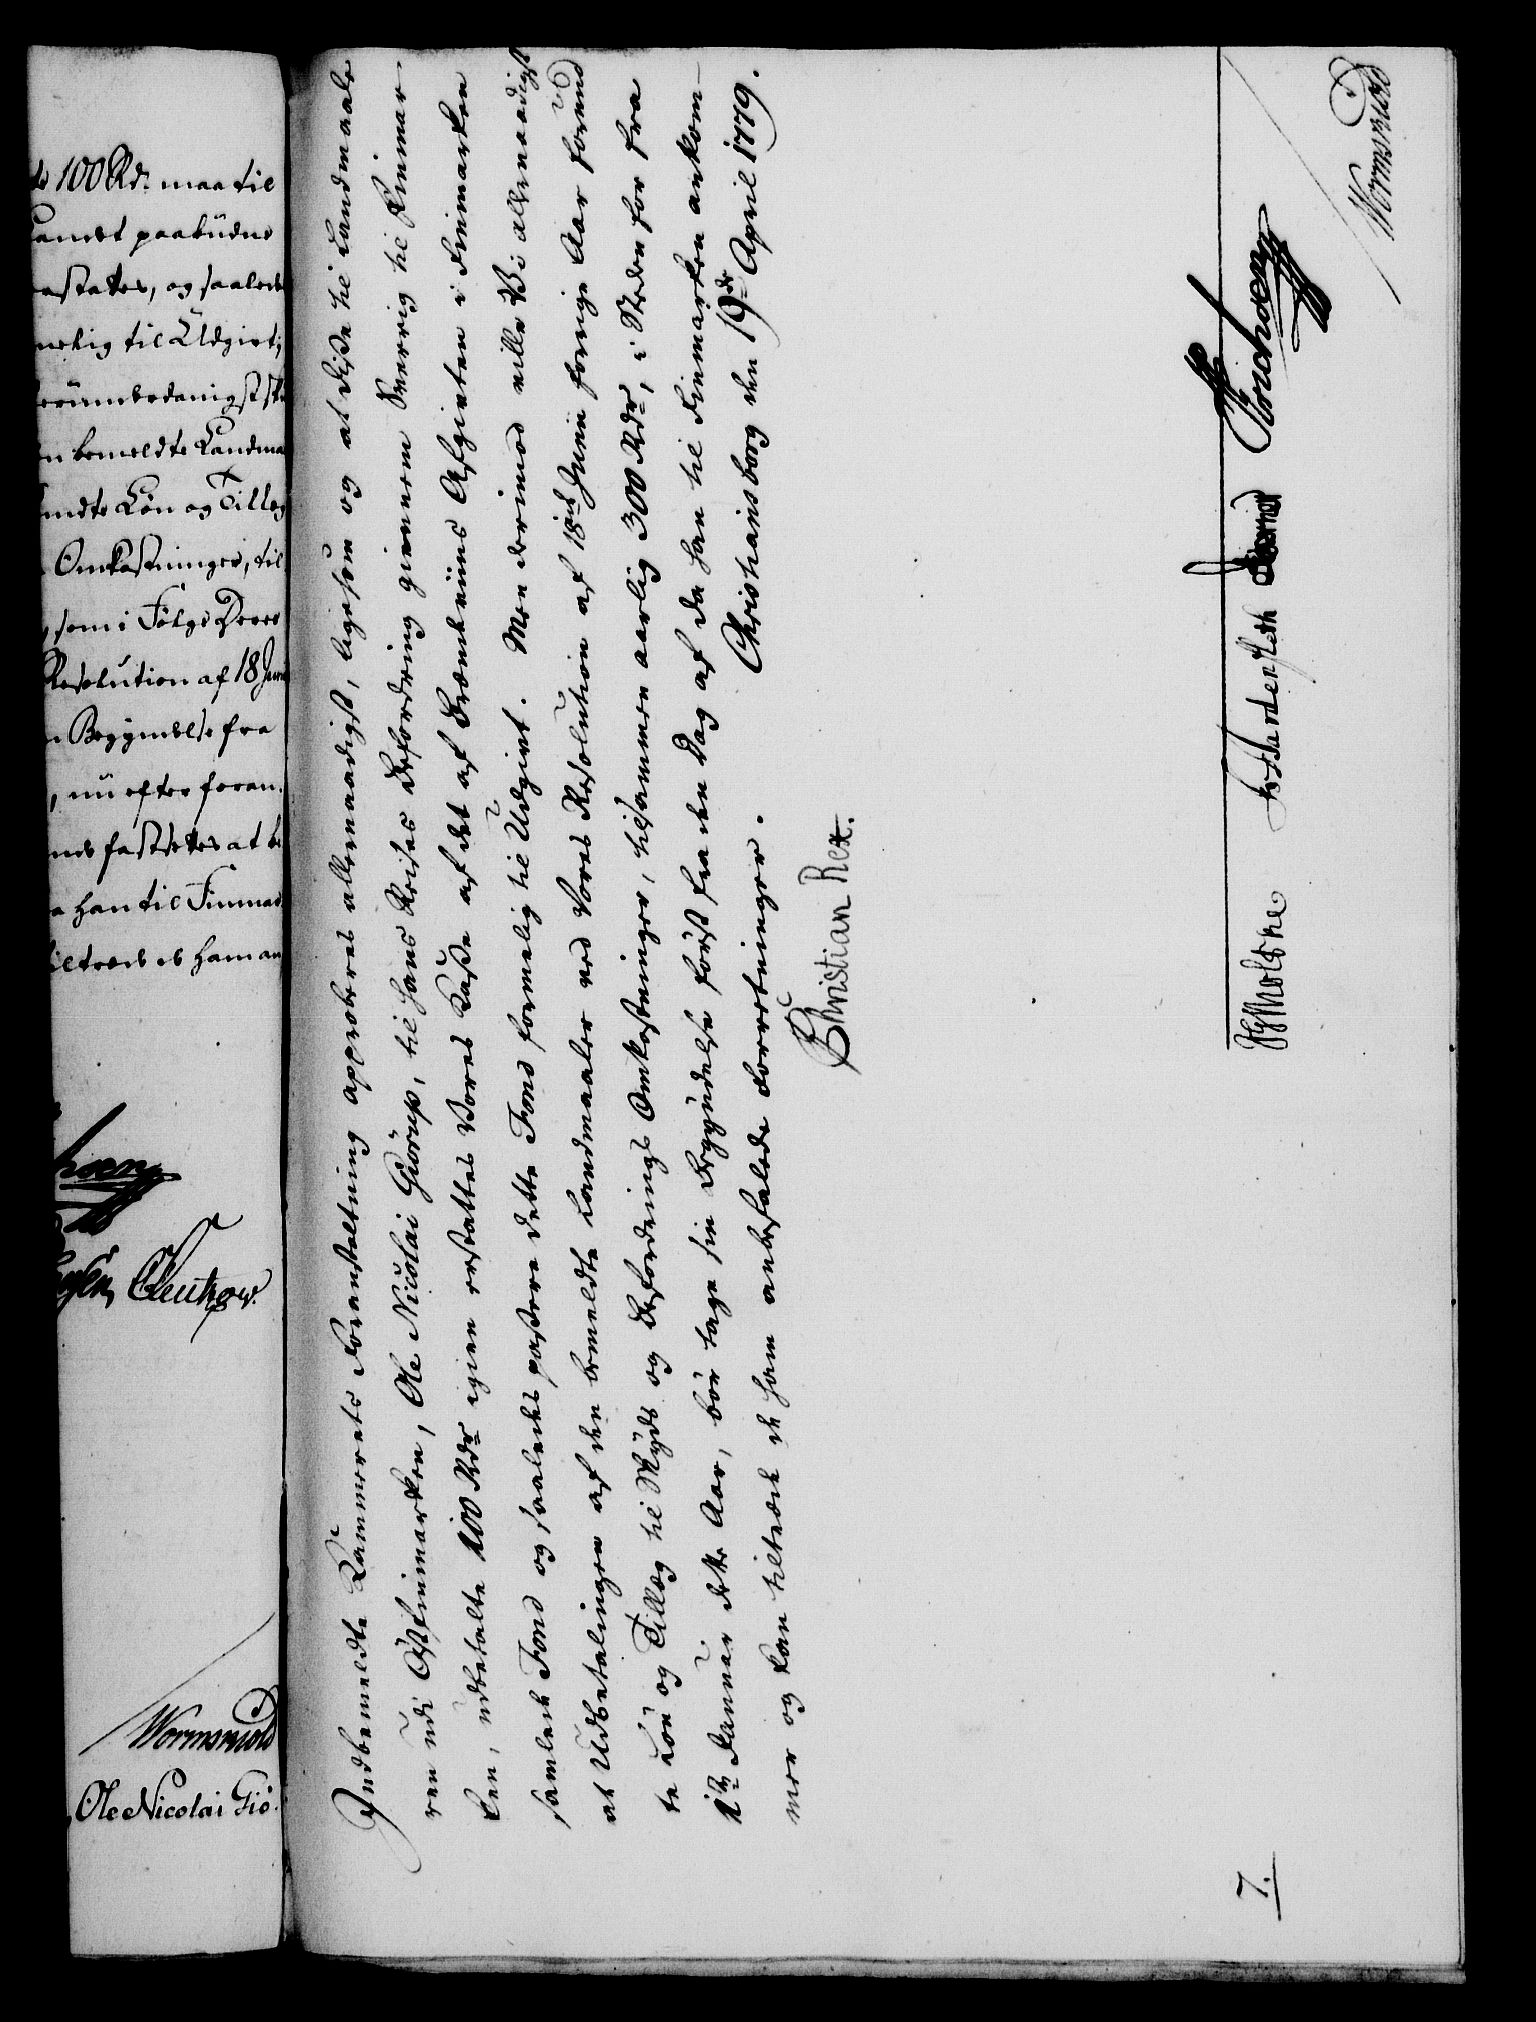 te 100 Rd. maa til
Landet paabudne
rstates, og saaledes
melig til Udgivt
erunderdanigst
n bemeldte Landma
undte Løn og Tillæg
Omkostninger, til
som i Følge Deres
Resolution af 18 Juni
n Begyndelse fra
, nu efter foran
nes fastsettes at be
a han til Finmar
iltræde de ham an
Wormskiold
Ole Nicolai Giö
Indbemeldte Kammerets Foranstaltning approberes allernaadigst, ligesom og at disse til Landmaale
ren udi Østfinmarken, Ole Nicolai Giörup, til hans Reises Befordring giennem Sverrig til Finmar-
ken, udbetalte 100 Rdr igien erstattes Vores Kasse af det af Brændeviins Afgivten i Finmarken
samlede Fond og saaledes passere dette Fond formelig til Udgivt. Men derimod ville Vi allernaadigst
at Udbetalingen af den bemeldte Landmaaler ved Vores Resolution af 18de Junii forrige Aar forund
te Løn og Tillæg til Skyds og Befordrings Omkostninger, tilsammen aarlig 300 Rdr, i Steden for fra
1ste Januar dette Aar, bør tage sin Begyndelse først fra den Dag af da han til Finmarken ankom-
mer og kan tiltræde de ham anbefalede Forretninger.
Christiansborg den 19de April 1779.
Christian Rex.
7.
Wormskiold